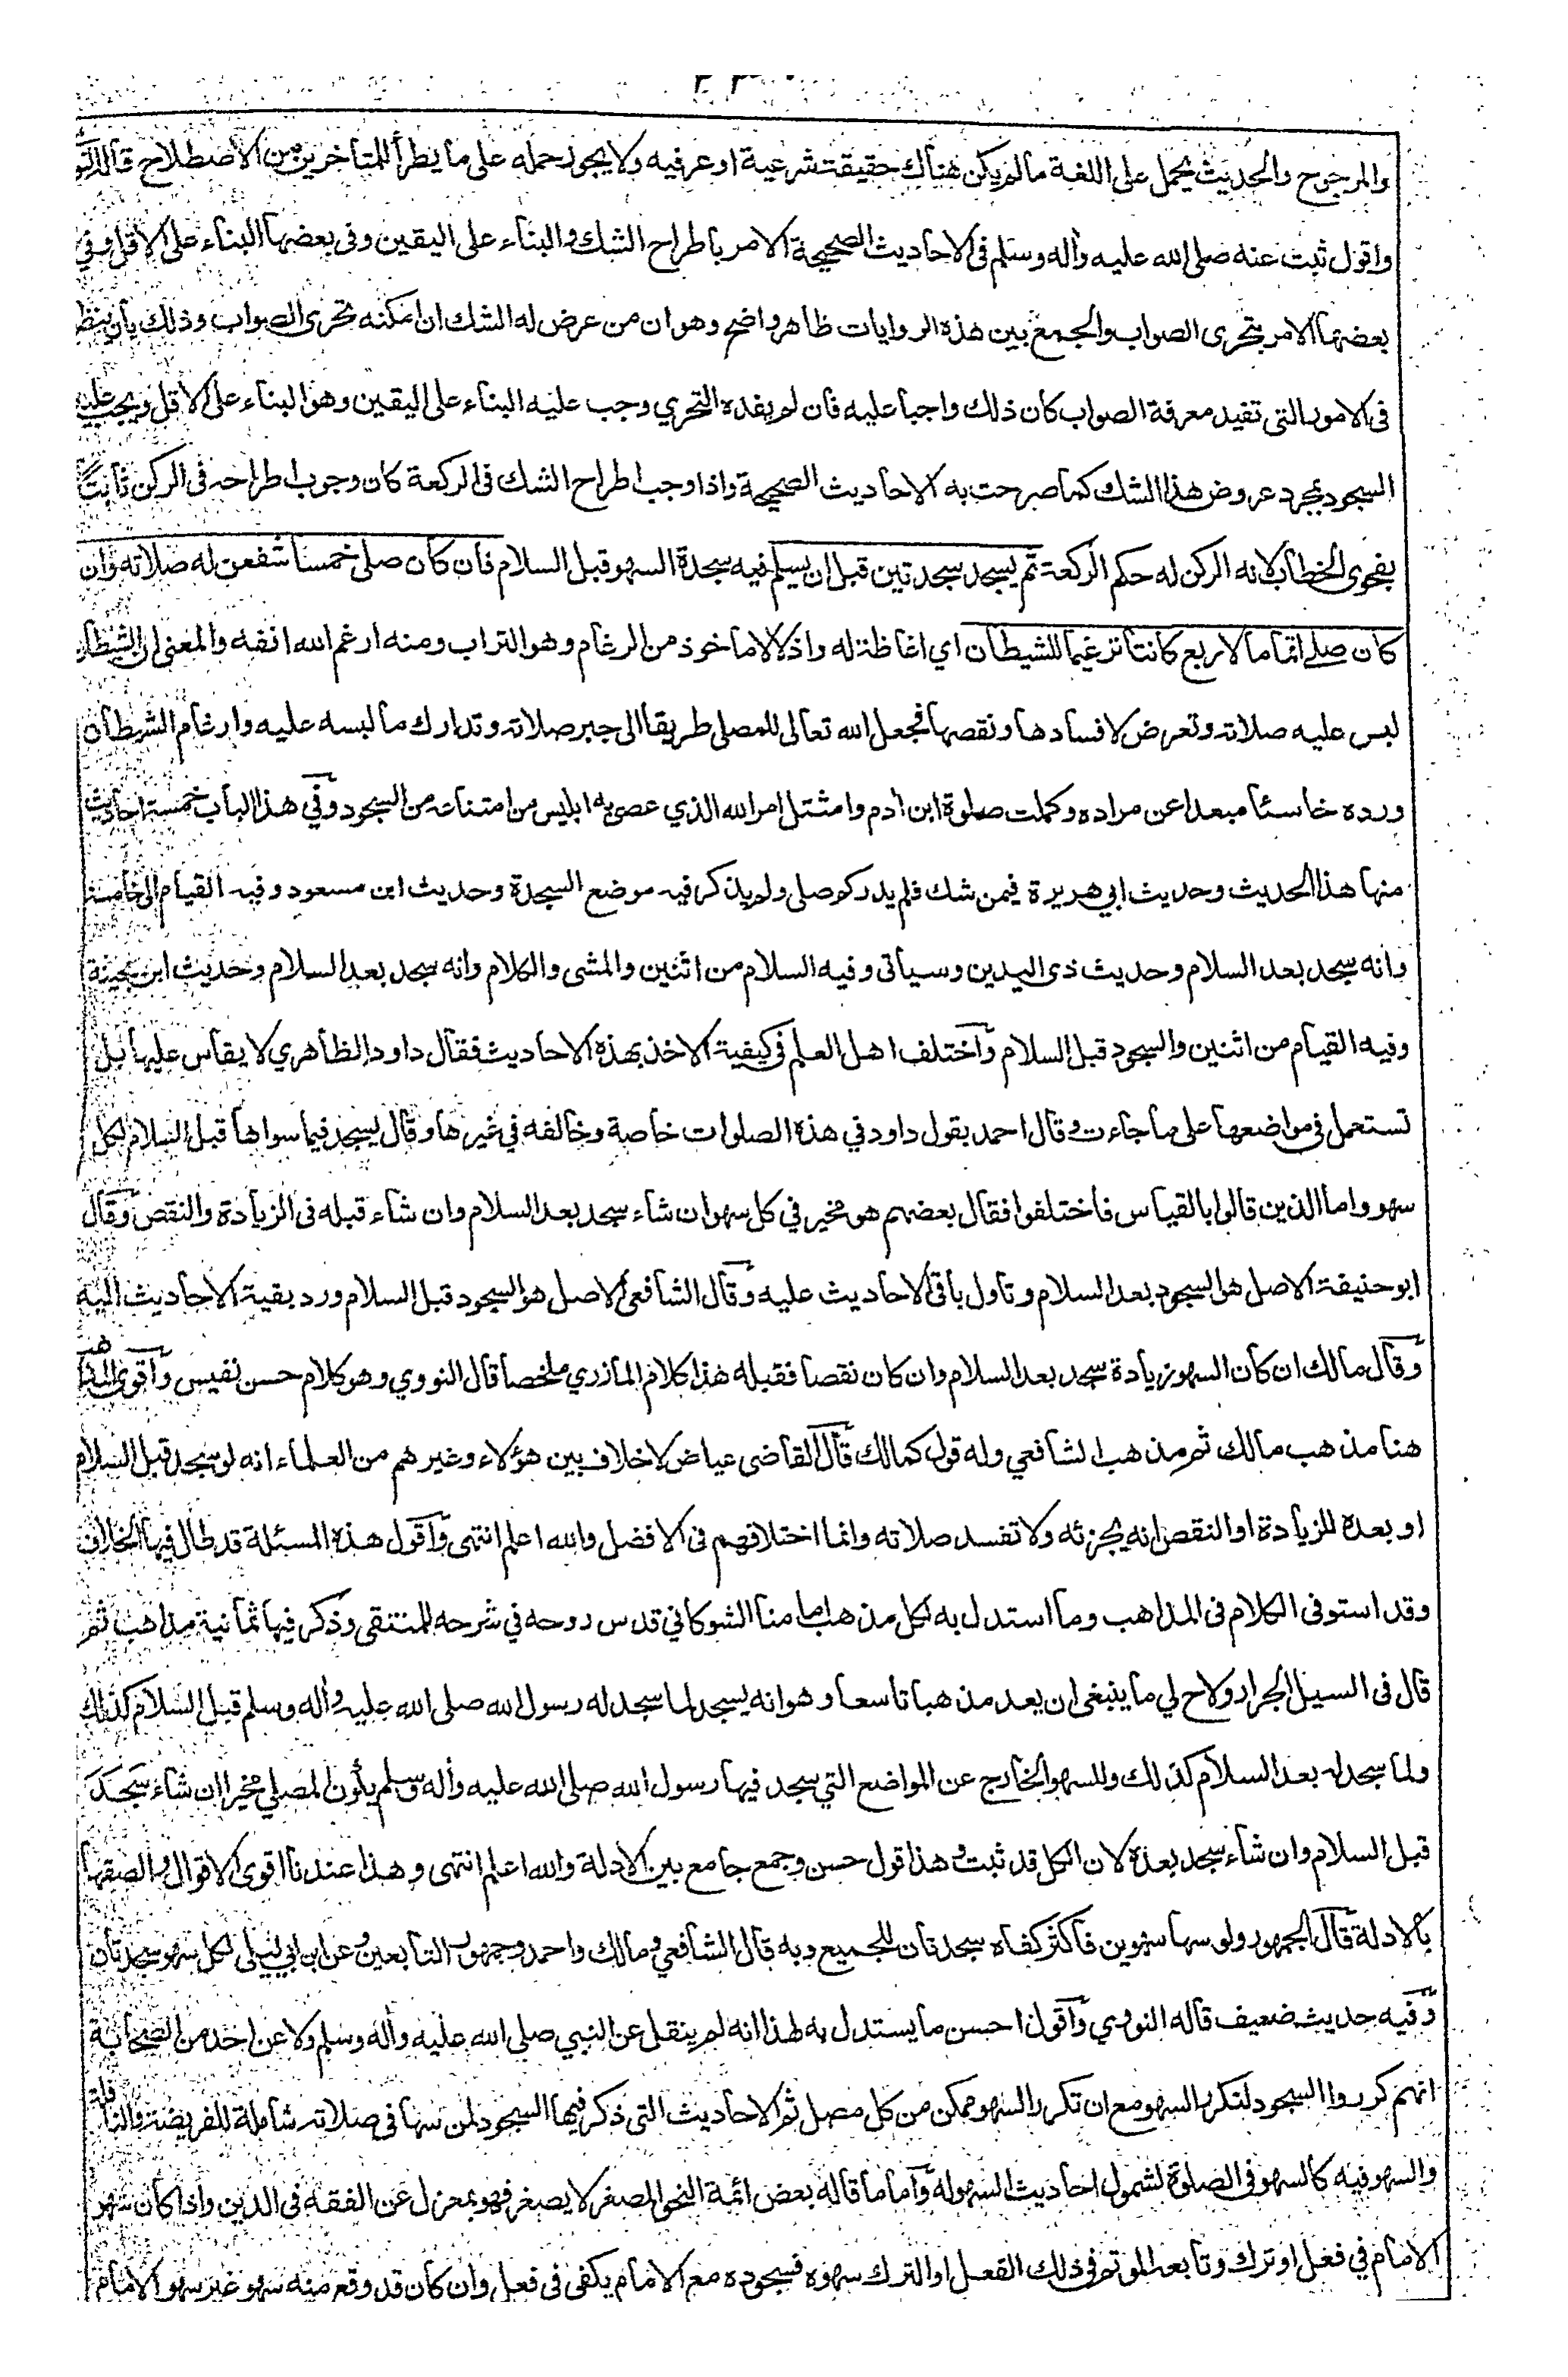 والمرجوح والحديث يحمل على اللغة ما لم يكن هناك حقيقة شرعية او عرفيه ولا يجوز حمله على ما يطرأ للمتاخرين من الاصطلاح
واقول ثبت عنه صلى الله عليه وأله وسلم فى الاحاديث الصحيحة الامر باطراح الشك والبناء على اليقين وفى بعضها البناء على الاقل وفي
بعضها الامر بتحرى الصواب والجمع بين هذه الروايات ظاهر واضح وهو ان من عرض له الشك ان امكنه تحرى الصواب وذلك بأن ينظر
فى الامور التى تفيد معرفة الصواب كان ذلك واجبا عليه فان لم يفده التحري وجب عليه البناء على اليقين وهو البناء على الاقل ويجب عليه
السجود بمجرد عروض هذا الشك وكما صرحت به الاحاديث الصحيحة واذا وجب اطراح الشك فى الركعة كان وجوب اطراحه فى الركن ثابتا
بفحوى الخطاب لانه الركن له حكم الركعة ثم يسجد سجدتين قبل ان يسلم فيه سجدة السهو قبل السلام فان كان صلى خمسا شفعن له صلاته وان
كان صلى اتماما لاربع كانتا ترغيما للشيطان اي اغاظة له واذلالا ماخوذ من الرغام وهو التراب ومنه ارغم الله انفه والمعنى ان الشيطان
لبس عليه صلاته وتعرض لافسادها ونقصها فجعل الله تعالى للمصلى طريقا الى جبر صلاته وتدارك ما لبسه عليه وارغام الشيطان
ورده خاسئا مبعدا عن مراده وكملت صلوة ابن أدم وامتثل امر الله الذي عصى به ابليس من امتناعه من السجود وفي هذا الباب خمسة احاديث
منها هذا الحديث وحديث ابي هريرة فيمن شك فلم يدر كم صلى ولم يذكر فيه موضع السجدة وحديث ابن مسعود وفيه القيام الى خامسة
وانه سجد بعد السلام وحديث ذى اليدين وسيأتى وفيه السلام من اثنين والمشى والكلام وانه سجد بعد السلام وحديث ابن بحينة
وفيه القيام من اثنين والسجود قبل السلام واختلف اهل العلم فى كيفية الاخذ بهذه الاحاديث فقال داود الظاهري لا يقاس عليها بل
تستعمل فى مواضعها على ما جاءت وقال احمد بقول داود في هذه الصلوات خاصة وخالفه في غيرها وقال يسجد فيما سواها قبل السلام لكل
سهو واما الذين قالوا بالقياس فاختلفوا فقال بعضهم هو مخير في كل سهو ان شاء سجد بعد السلام وان شاء قبله فى الزيادة والنقص وقال
ابو حنيفة الاصل هو السجود بعد السلام وتاول باقى الاحاديث عليه وقال الشافعى الاصل هو السجود قبل السلام ورد بقية الاحاديث اليه
وقال مالك ان كان السهو زيادة سجد بعد السلام وان كان نقصا فقبله هذا كلام المازري ملخصا قال النووي وهو كلام حسن نفيس واقوى المذاهب
هنا مذهب مالك ثم مذهب الشافعي وله قول كمالك قال القاضى عياض لا خلاف بين هؤلاء وغيرهم من العلماء انه لو سجد قبل السلام
او بعده للزيادة او النقص انه يجزئه ولا تفسد صلاته وانما اختلافهم فى الافضل والله اعلم انتهى واقول هذه المسئلة قد طال فيها الخلاف
وقد استوفى الكلام فى المذاهب وما استدل به لكل مذهب امامنا الشوكاني قدس روحه في شرحه للمنتقى وذكر فيها ثمانية مذاهب ثم
قال فى السيل الجرار ولاح لي ما ينبغى ان يعد مذهبا تاسعا وهو انه يسجد لما سجد له رسول الله صلى الله عليه وأله وسلم قبل السلام كذلك
ولما سجد له بعد السلام كذلك وللسهو الخارج عن المواضع التي سجد فيها رسول الله صلى الله عليه وأله وسلم يكون المصلي مخيرا ان شاء سجد
قبل السلام وان شاء سجد بعده لان الكل قد ثبت وهذا قول حسن وجمع جامع بين الادلة والله اعلم انتهى وهذا عندنا اقوى الاقوال والصقها
بالادلة قال الجمهور ولو سها سهوين فاكثر كفاه سجدتان للجميع وبه قال الشافعي ومالك واحمد وجمهور التابعين وعن ابن ابي ليلى لكل سهو سجدتان
وفيه حديث ضعيف قاله النووي واقول احسن ما يستدل به لهذا انه لم ينقل عن النبي صلى الله عليه وأله وسلم ولا عن احد من الصحابة
انهم كرروا السجود لتكرر السهو مع ان تكرر السهو ممكن من كل مصل ثم الاحاديث التى ذكر فيها السجود لمن سها فى صلاته شاملة للفريضة والنافلة
والسهو فيه كالسهو فى الصلوة لشمول احاديث السهو له واما ما قاله بعض ائمة النحو المصغر لا يصغر فهو بمعزل عن الفقه فى الدين واذا كان سهو
الامام في فعل او ترك وتابعه المؤتم فى ذلك الفعل او الترك سهوه فسجوده مع الامام يكفى فى فعل وان كان قد وقع منه سهو غير سهو الامام